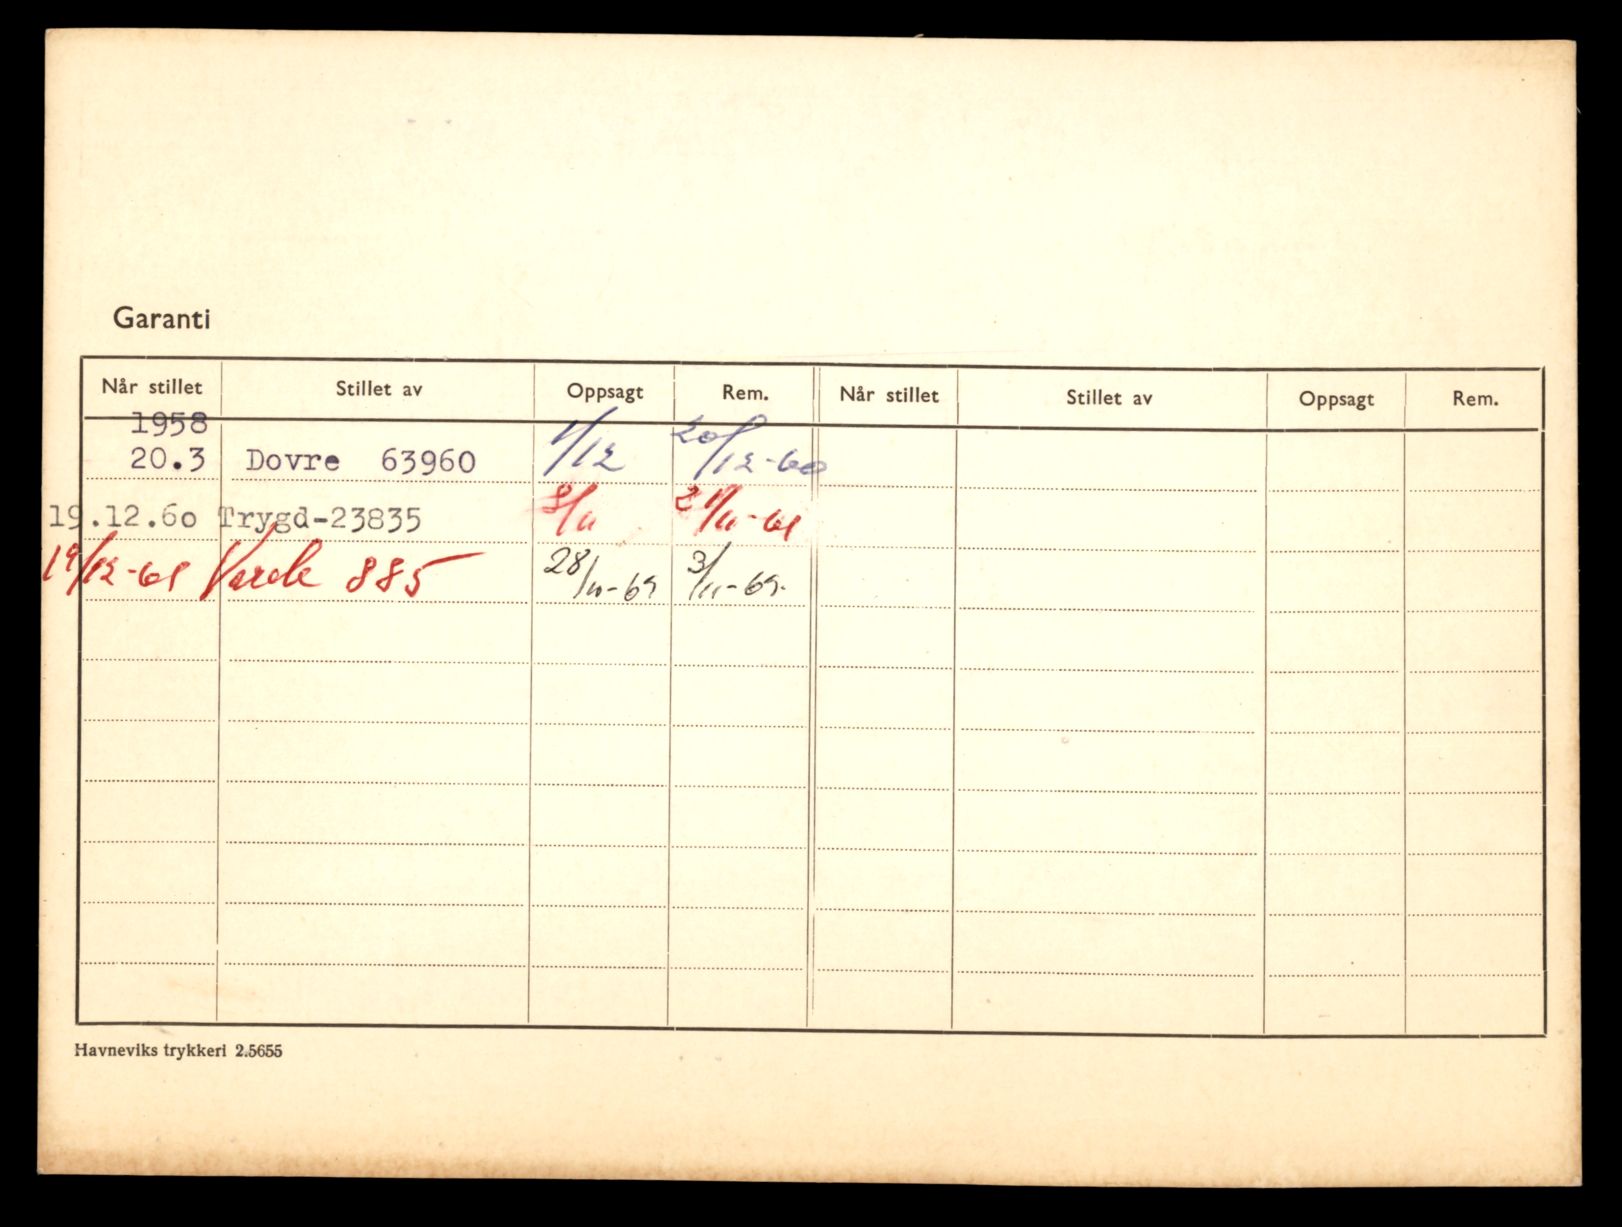 Garanti
Når stillet Stillet av Oppsagt Rem. Når stillet Stillet av Oppsagt Rem.
1958
20.3 Dovre 63960 1/12 20/12-60
19.12.60 Trygd-23835 8/11 21/11-61
19/12-61 Varde 885 28/10-69 3/11-69.
Havneviks trykkeri 2.5655